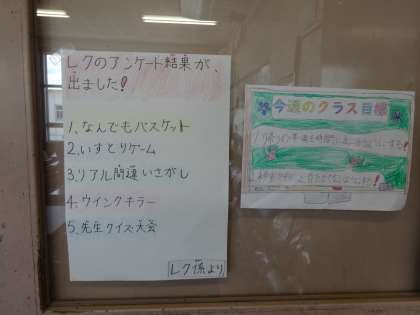 レクのアンケート結果が、
出ました!
1、なんでもバスケット
2.いすとりゲーム
3、リアル間違いさがし
4.ウインクキラー
5.先生クイズ大会
レク係より
今週のクラス目標